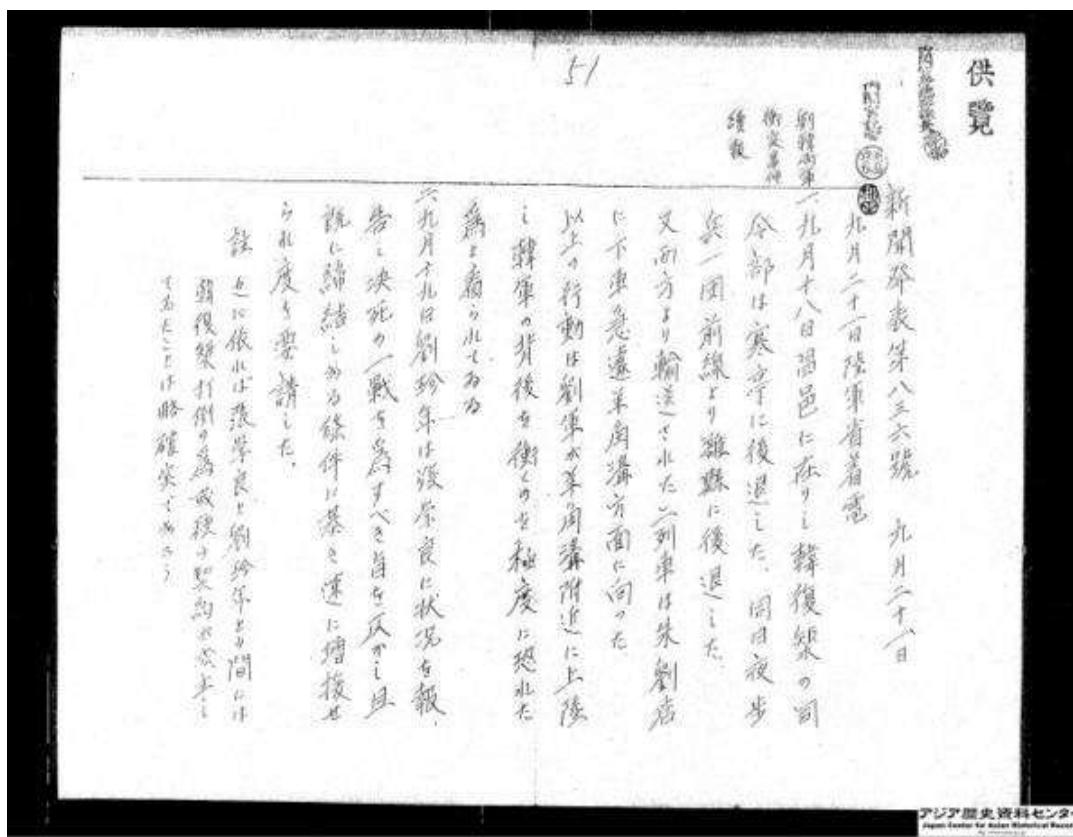 供覽
51
劉韓両軍
衝突事件
續報
新聞発表第八三六號 九月二十一日
九月二十一日陸軍省着電
一、九月十八日昌邑に在りし韓復榘の司
令部は寒亭に後退した、同日夜歩
兵一团前線より濰縣に後退した、
又西方より輸送された二列車は朱劉店
に下車急遽羊角溝方面に向つた
以上の行動は劉軍が羊角溝附近に上陸
し韓軍の背後を衝くのを極度に恐れた
為と看られてゐる
二、九月十九日劉珍年は張学良に状况を報
告し决死の一戦を為すべき旨を し且
既に締結しある條件に基き速に増援せ
られ度を要請した、
註 之に依れば張学良と劉珍年との間には
韓復榘打倒の為 契約が
てゐたことは略確実であらう
アジア歴史資料センター
Japan Center for Asian Historical Records